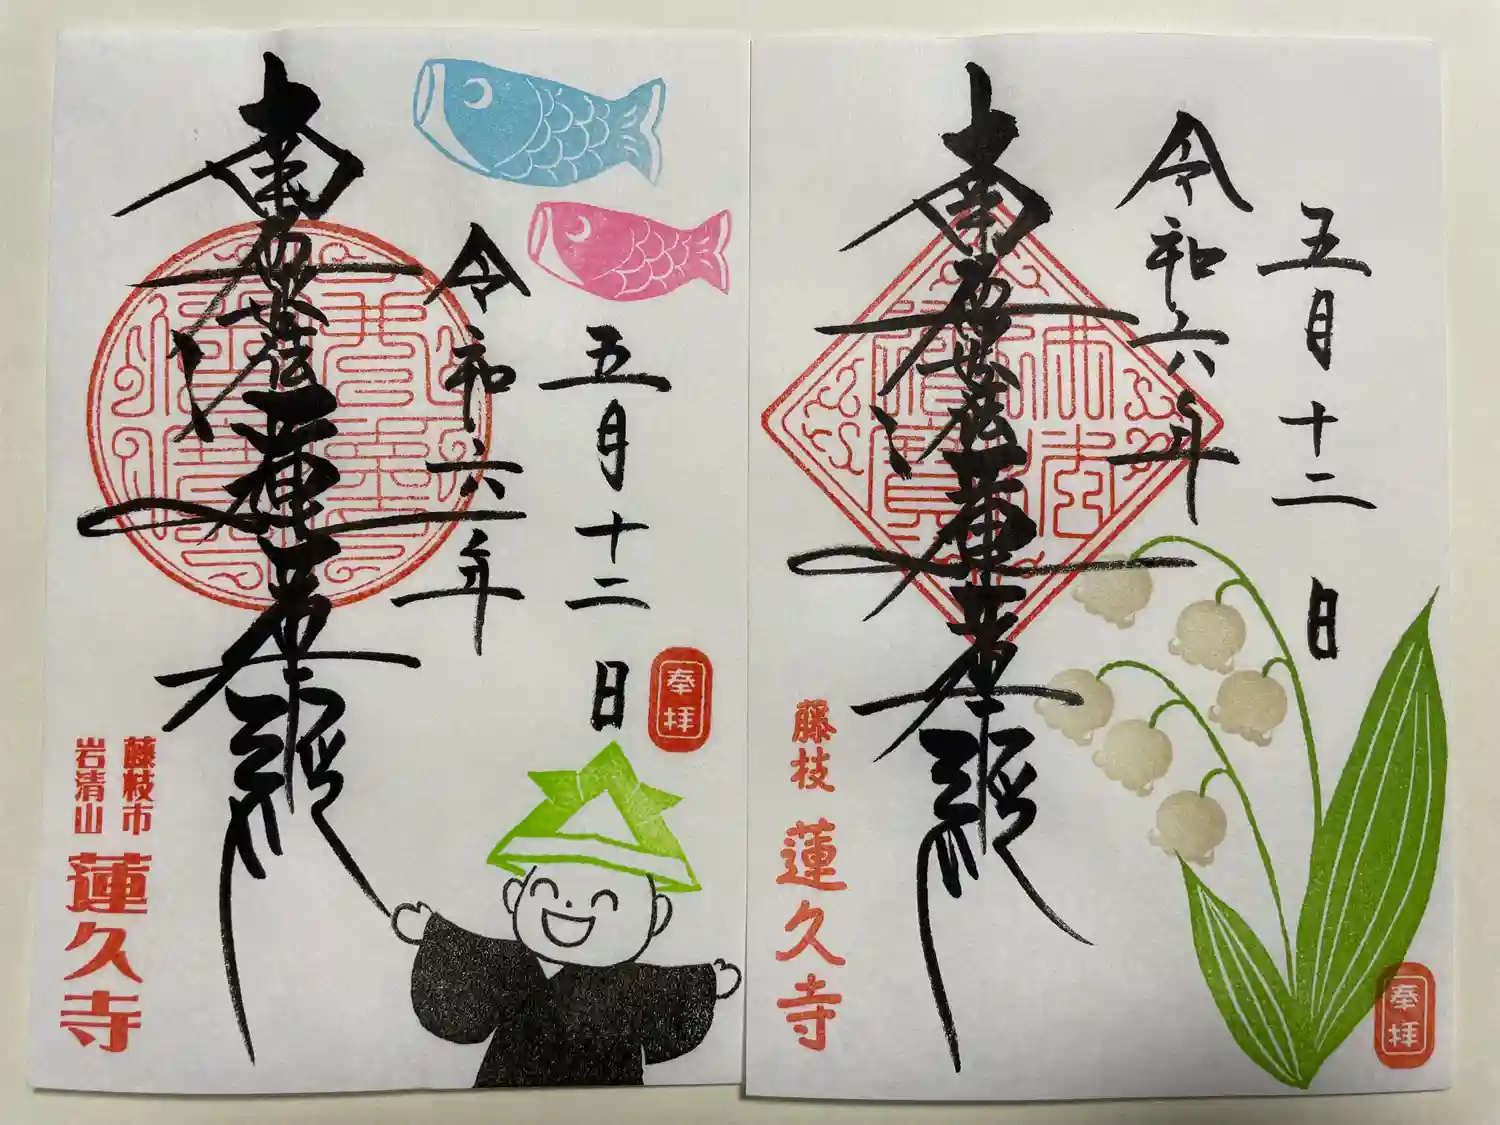 南無妙法蓮華経
令和六年
五月十二日
奉拝
藤枝市
岩清山
蓮久寺
南無妙法蓮華経
令和六年
五月十二日
藤枝
蓮久寺
奉拝